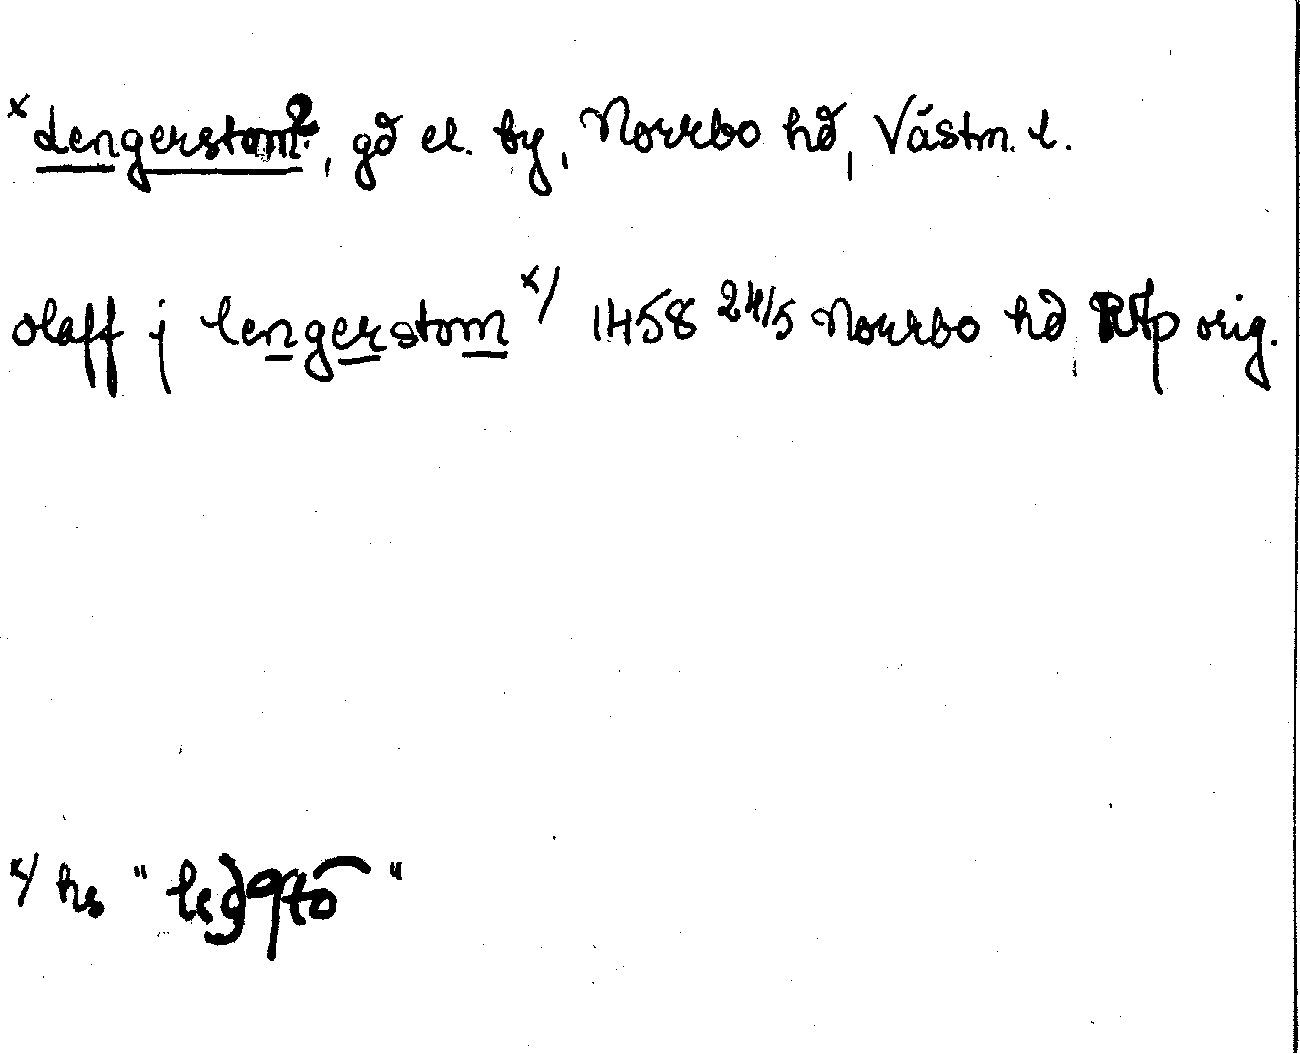 x Lengerstom?, gd el. by, Norrbo hd, Västm. l.
olaff j lengerstom x/ 1458 24/5 Norrbo hd, RAp orig.
x/ hs " "